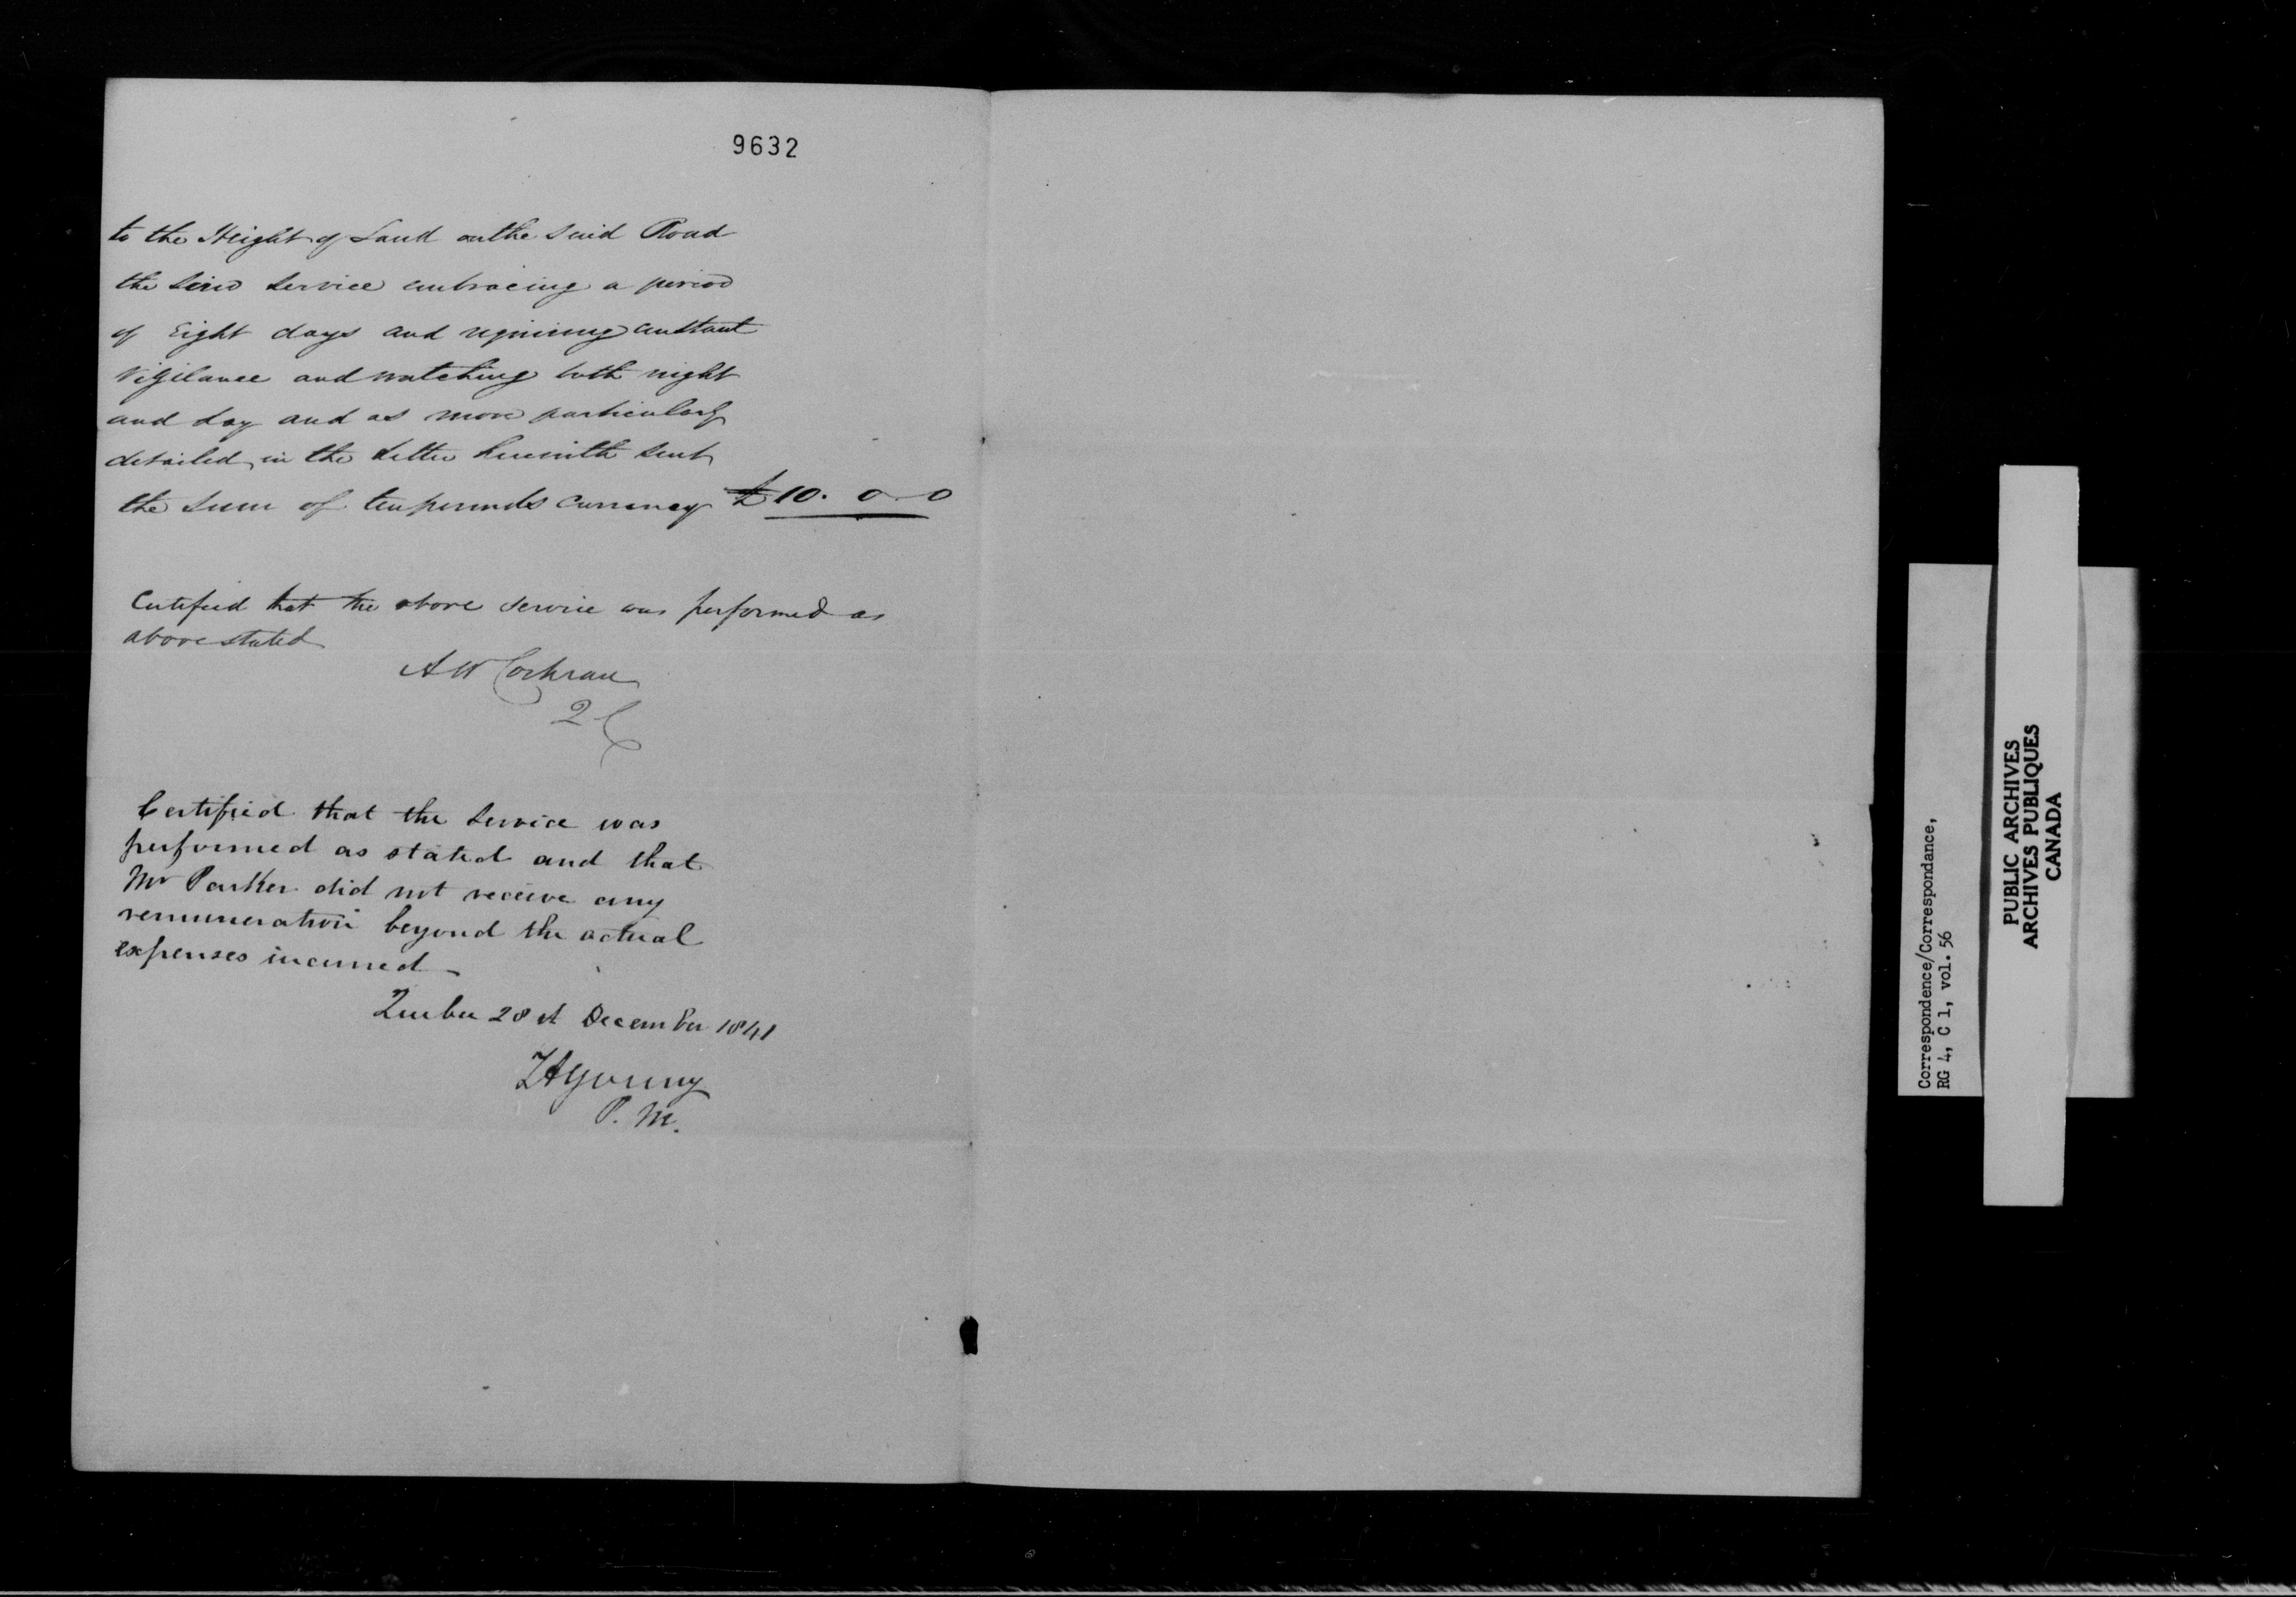 9632
to the Height of Land on the said Road
the said service embracing a period
of Eight days and requiring constant
Vigilance and watching both night
and day and as more particularly
detailed in the Letter herewith sent
the sum of ten pounds currency £10. 0. 0
Certified that the above service was performed as
above stated
AW Cochran
QC
Certified that the service was
performed as stated and that
Mr Parker did not receive any
remuneration beyond the actual
expenses incurred
Quebec 28 December 1841
TAYoung
P. M.
Correspondence/Correspondance,
RG 4, C 1, vol. 56
PUBLIC ARCHIVES
ARCHIVES PUBLIQUES
CANADA